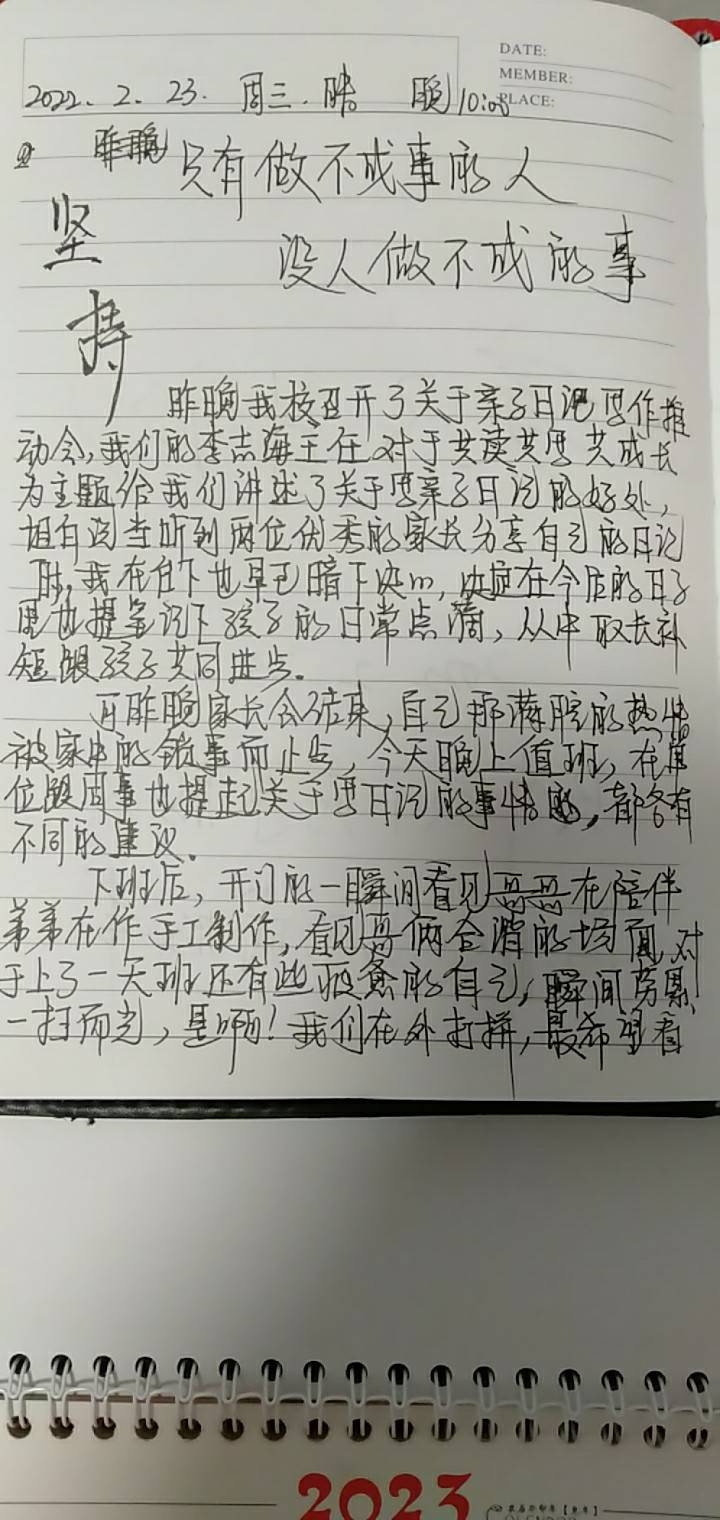 DATE:
MEMBER:
PLACE:
2022.2.23. 周三.晴 晚10:05
昨晚 只有做不成事的人
坚 没人做不成的事
持
昨晚我校召开了关于亲子日记写作推
动会,我们的李志海主任对于共读共写共成长
为主题给我们讲述了关于写亲子日记的好处,
坦白说当听到两位优秀的家长分享自己的日记
时,我在台下也早已暗下决心,决定在今后的日子
里也提笔记下孩子的日常点滴,从中取长补
短跟孩子共同进步。
可昨晚家长会结束,自己那满腔的热情
被家中的锁事而止步,今天晚上值班,在单
位跟同事也提起关于写日记的事情的,都各有
不同的建议。
下班后,开门的一瞬间看见哥哥在陪伴
弟弟在作手工制作,看见哥俩合谐的场面,对
于上了一天班还有些疲惫的自己,瞬间劳累
一扫而光,是啊!我们在外打拼,最希望看
2023